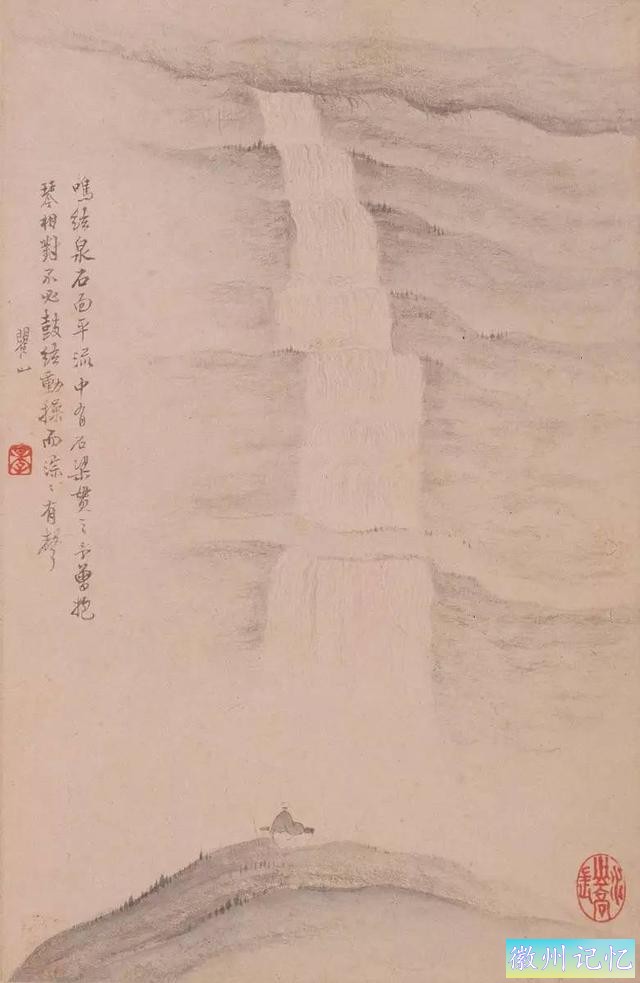 鳴絃泉石面平流中有石梁貫之予曾抱
琴相對不必鼓絃動操而淙〻有聲
瞿山
徽州记忆